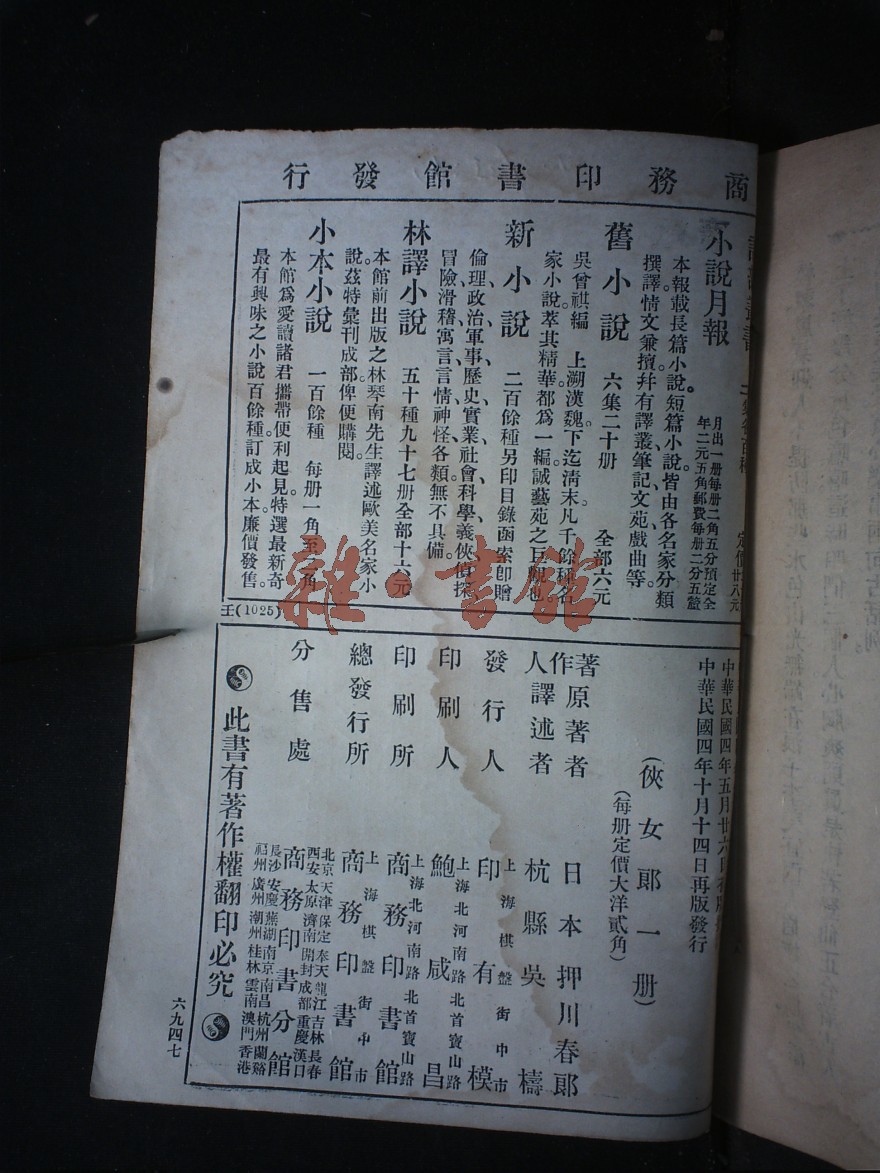 商務印書館發行
小說月報
月出一册每册二角五分預定全
年二元五角郵費每册二分五釐
本報載長篇小說短篇小說皆由各名家分類
撰譯情文兼擅幷有譯叢筆記文苑戲曲等
舊小說 六集二十册 全部六元
吳曾祺編 上溯漢魏下迄淸末凡千餘種名
家小說萃其精華都爲一編誠藝苑之巨觀也
新小說 二百餘種另印目錄函索卽贈
倫理、政治、軍事、歷史、實業、社會、科學、義俠、偵探、
冒險、滑稽、寓言、言情、神怪、各類無不具備。
林譯小說 五十種九十七册全部十六元
本館前出版之林琴南先生譯述歐美名家小
說茲特彙刊成部俾便購閱。
小本小說 一百餘種 每册一角至二角
本館爲愛讀諸君攜帶便利起見特選最新奇
最有興味之小說百餘種訂成小本。廉價發售。
王(1025)
中華民國四年五月廿六日
中華民國四年十月十四日再版發行
(俠女郎一册)
(每册定價大洋貳角)
著作人
原著者 日本押川春郎
譯述者 杭縣吳檮
發行人 上海棋盤街中市 印有模
印刷人 上海北河南路北首寶山路 鮑咸昌
印刷所 上海北河南路北首寶山路 商務印書館
總發行所 上海棋盤街中市 商務印書館
分售處
北京天津保定奉天龍江吉林長春
西安太原濟南開封成都重慶漢口
商務印書分館
長沙安慶蕪湖南京南昌杭州蘭谿
福州廣州潮州桂林雲南澳門香港
此書有著作權翻印必究
六九四七
雜·書館